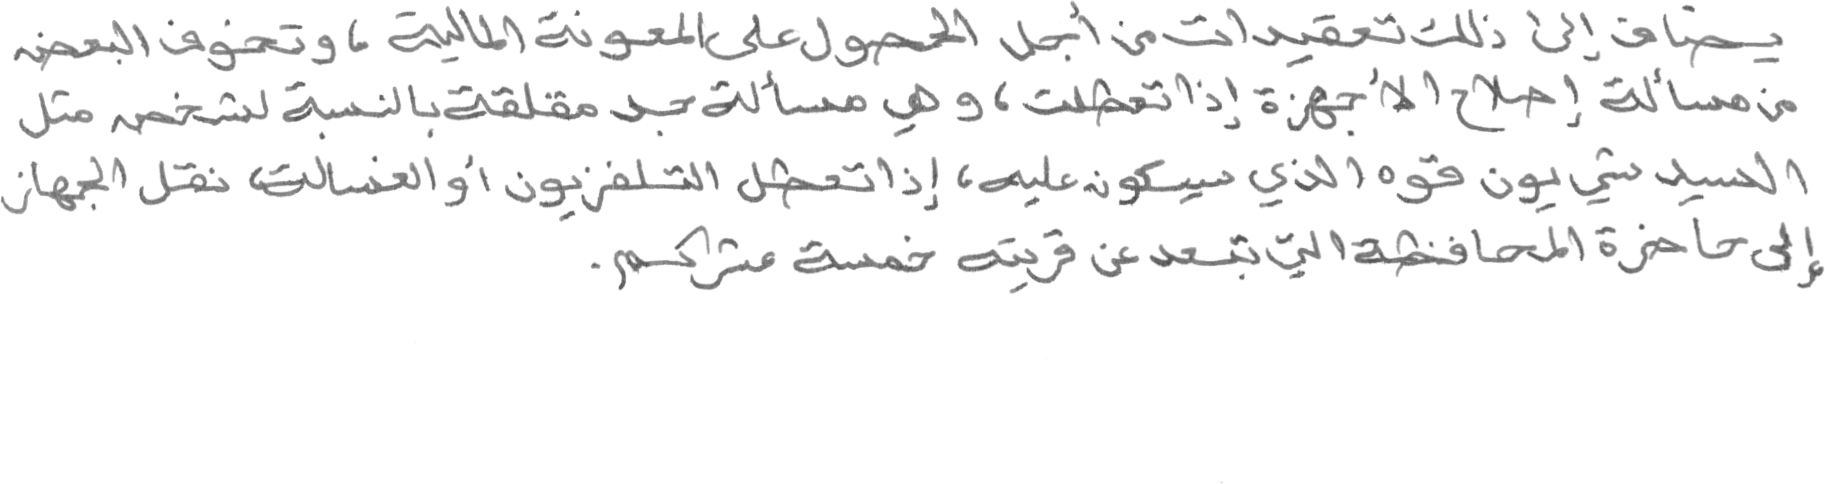 يضاف إلى ذلك تعقيدات من أجل الحصول على المعونة المالية ، وتخوف البعض
من مسألة إصلاح الأجهزة إذا تعطلت ، وهي مسألة جد مقلقة بالنسبة لشخص مثل
السيد شي يون قوه الذي سيكون عليه ، إذا تعطل التلفزيون أو الغسالة، نقل الجهاز
إلى حاضرة المحافظة التي تبعد عن قريته خمسة عشر كم .